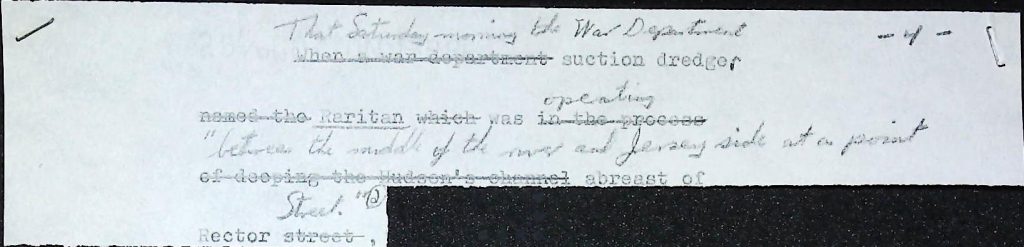 That Saturday morning the War Department
- 4 -
When a war department suction dredge,
operating
named the Raritan which was in the process
"between the middle of the river and Jersey side at a point
of deeping the Hudson's channel abreast of
Street."②
Rector street ,